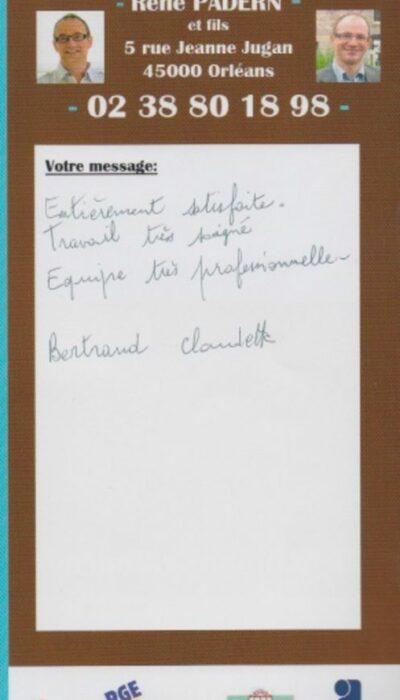 - René PADERN -
et fils
5 rue Jeanne Jugan
45000 Orléans
- 02 38 80 18 98 -
Votre message:
Entièrement satisfaite.
Travail très soigné
Equipe très professionnelle
Bertrand Claudette
RGE